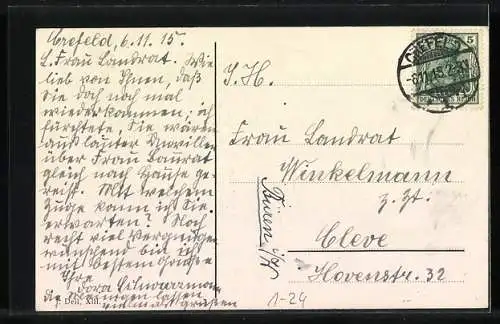 Crefeld, 6.11.15.
L. Frau Landrat. Wie
lieb von Ihnen, daß
Sie doch noch mal
wiederkommen; ich
fürchtete, Sie wären
aus lauter
über Frau Baurat
gleich nach Hause ge-
reist. Mit welchem
Zuge kann ich Sie
erwarten? Noch
recht viel Vergnügen
wünschend bin ich
mit besten Grüße
Ihre
Dora Schwarzmann
Die lassen
vielmals grüßen
I. H.
Frau Landrat
Winkelmann
z. Zt.
Cleve
Hovenstr. 32
Büren i/W
1-24
CREFELD
5